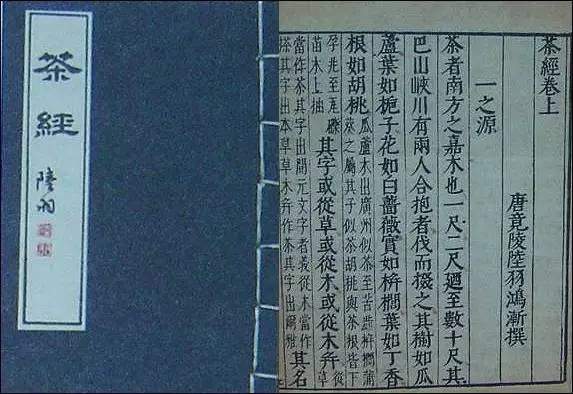 茶經
陸羽
茶經卷上
唐竟陵陸羽鴻漸撰
一之源
茶者南方之嘉木也一尺二尺廼至數十尺其
巴山峽川有兩人合抱者伐而掇之其樹如瓜
蘆葉如梔子花如白薔薇實如栟櫚葉如丁香
根如胡桃瓜蘆木出廣州似茶至苦澁栟櫚蒲
葵之屬其子似茶胡桃與茶根皆下
孕兆至瓦礫
苗木上抽
其字或從草或從木或從木并從草
當作茶其字出開元文字者義從木當作
搽其字出本草草木并作茶其字出爾雅
其名